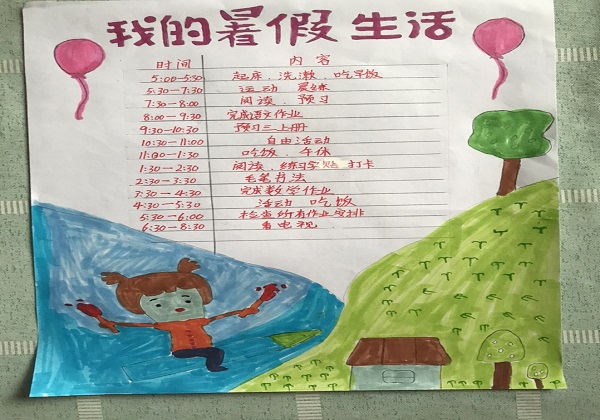 我的暑假生活
时间 内容
5:00-5:30 起床、洗漱、吃早饭
5:30-7:30 运动 晨练
7:30-8:00 阅读、预习
8:00-9:30 完成语文作业
9:30-10:30 预习三上册
10:30-11:00 自由活动
11:00-1:30 吃饭 午休
1:30-2:30 阅读 练习字帖 打卡
2:30-3:30 毛笔书法
3:30-4:30 完成数学作业
4:30-5:30 活动 吃饭
5:30-6:00 检查所有作业安排
6:30-8:30 看电视